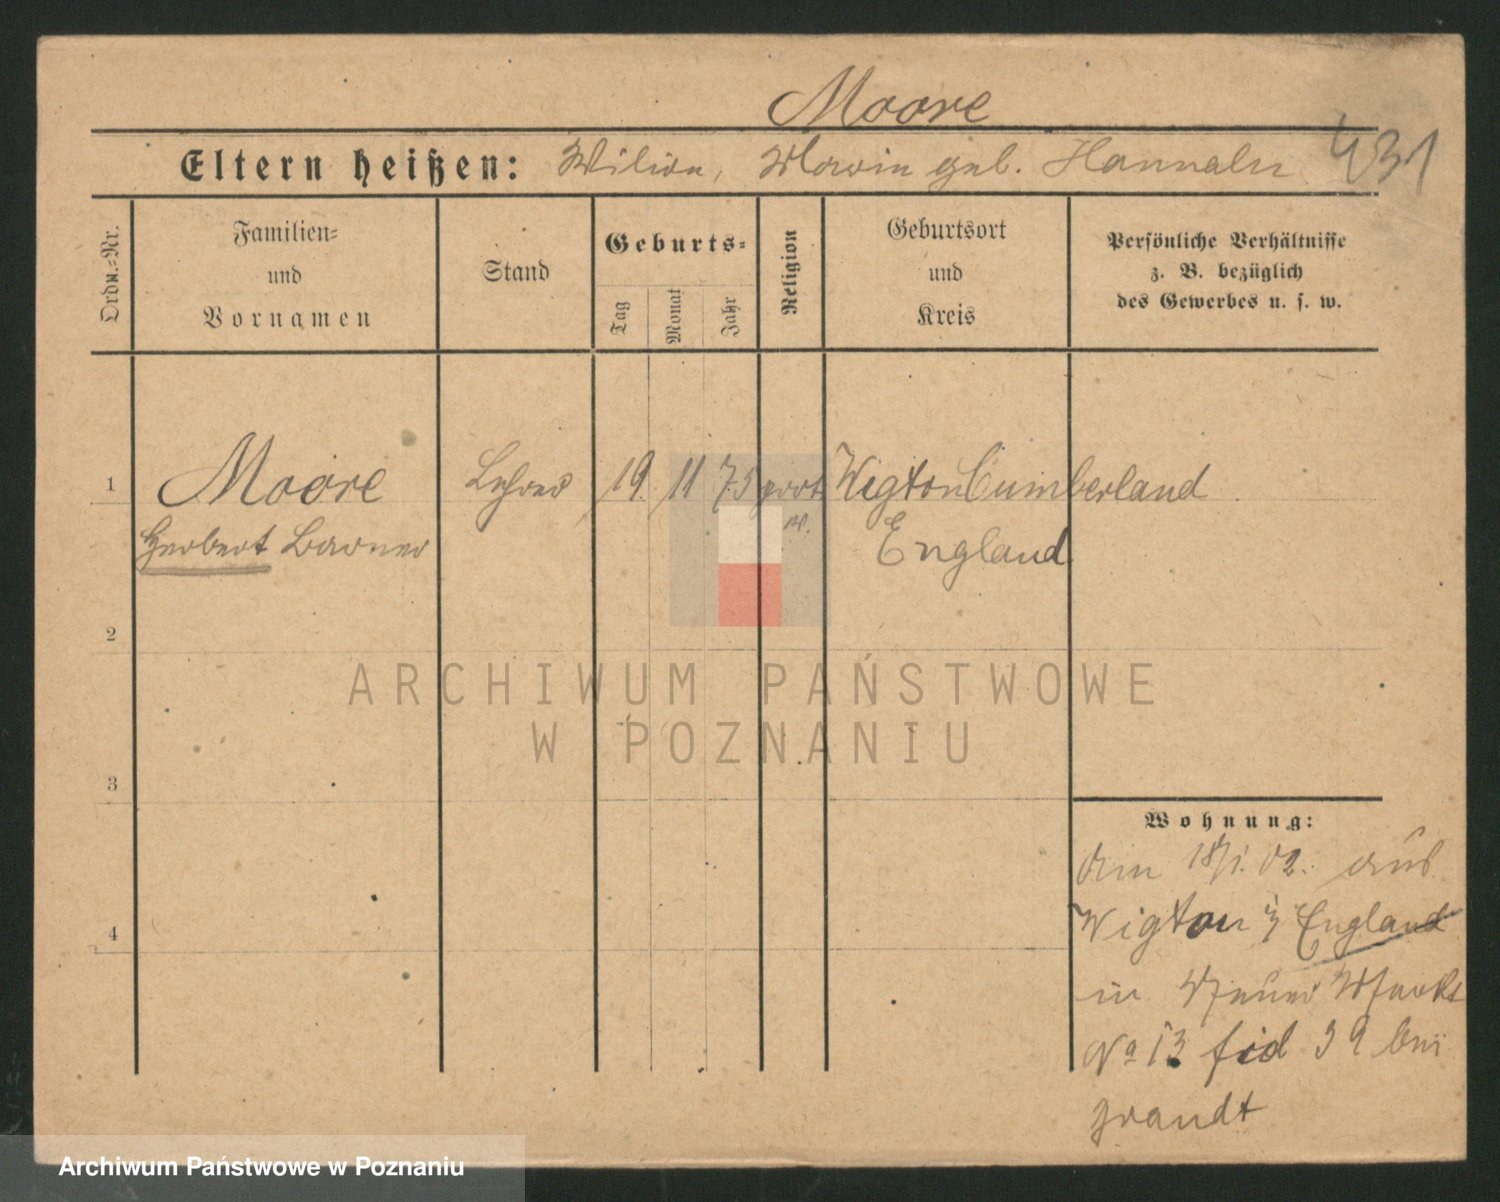 Moore
431
Eltern heißen: Wiliam, Marie geb. Hannah
Ordn.-Nr.
Familien-
und
Vornamen
Stand
Geburts-
Tag
Monat
Jahr
Religion
Geburtsort
und
Kreis
Persönliche Verhältnisse
z. B. bezüglich
des Gewerbes u. s. w.
1
Moore Lehrer 19. 11 75 prot. Wigton Cumberland
Herbert England
2
ARCHIWUM PAŃSTWOWE
W POZNANIU
3
Wohnung:
am 18/1. 02. aus
4
Wigton England
in Neuer Markt
No 13 39 bei
Brandt
Archiwum Państwowe w Poznaniu